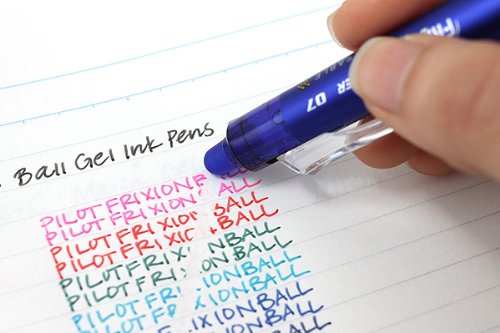 Ball Gel Ink Pens
PILOT FRIXION B
PILOT FRIXION ALL
PILOT FRIXION BALL
PILOT FRIXIO BALL
PILOT FRIXI NBALL
PILOT FRI IONBALL
PILOT FRI IONBALL
PILOT F IXIONBALL
IXIONBALL
IONBALL
07